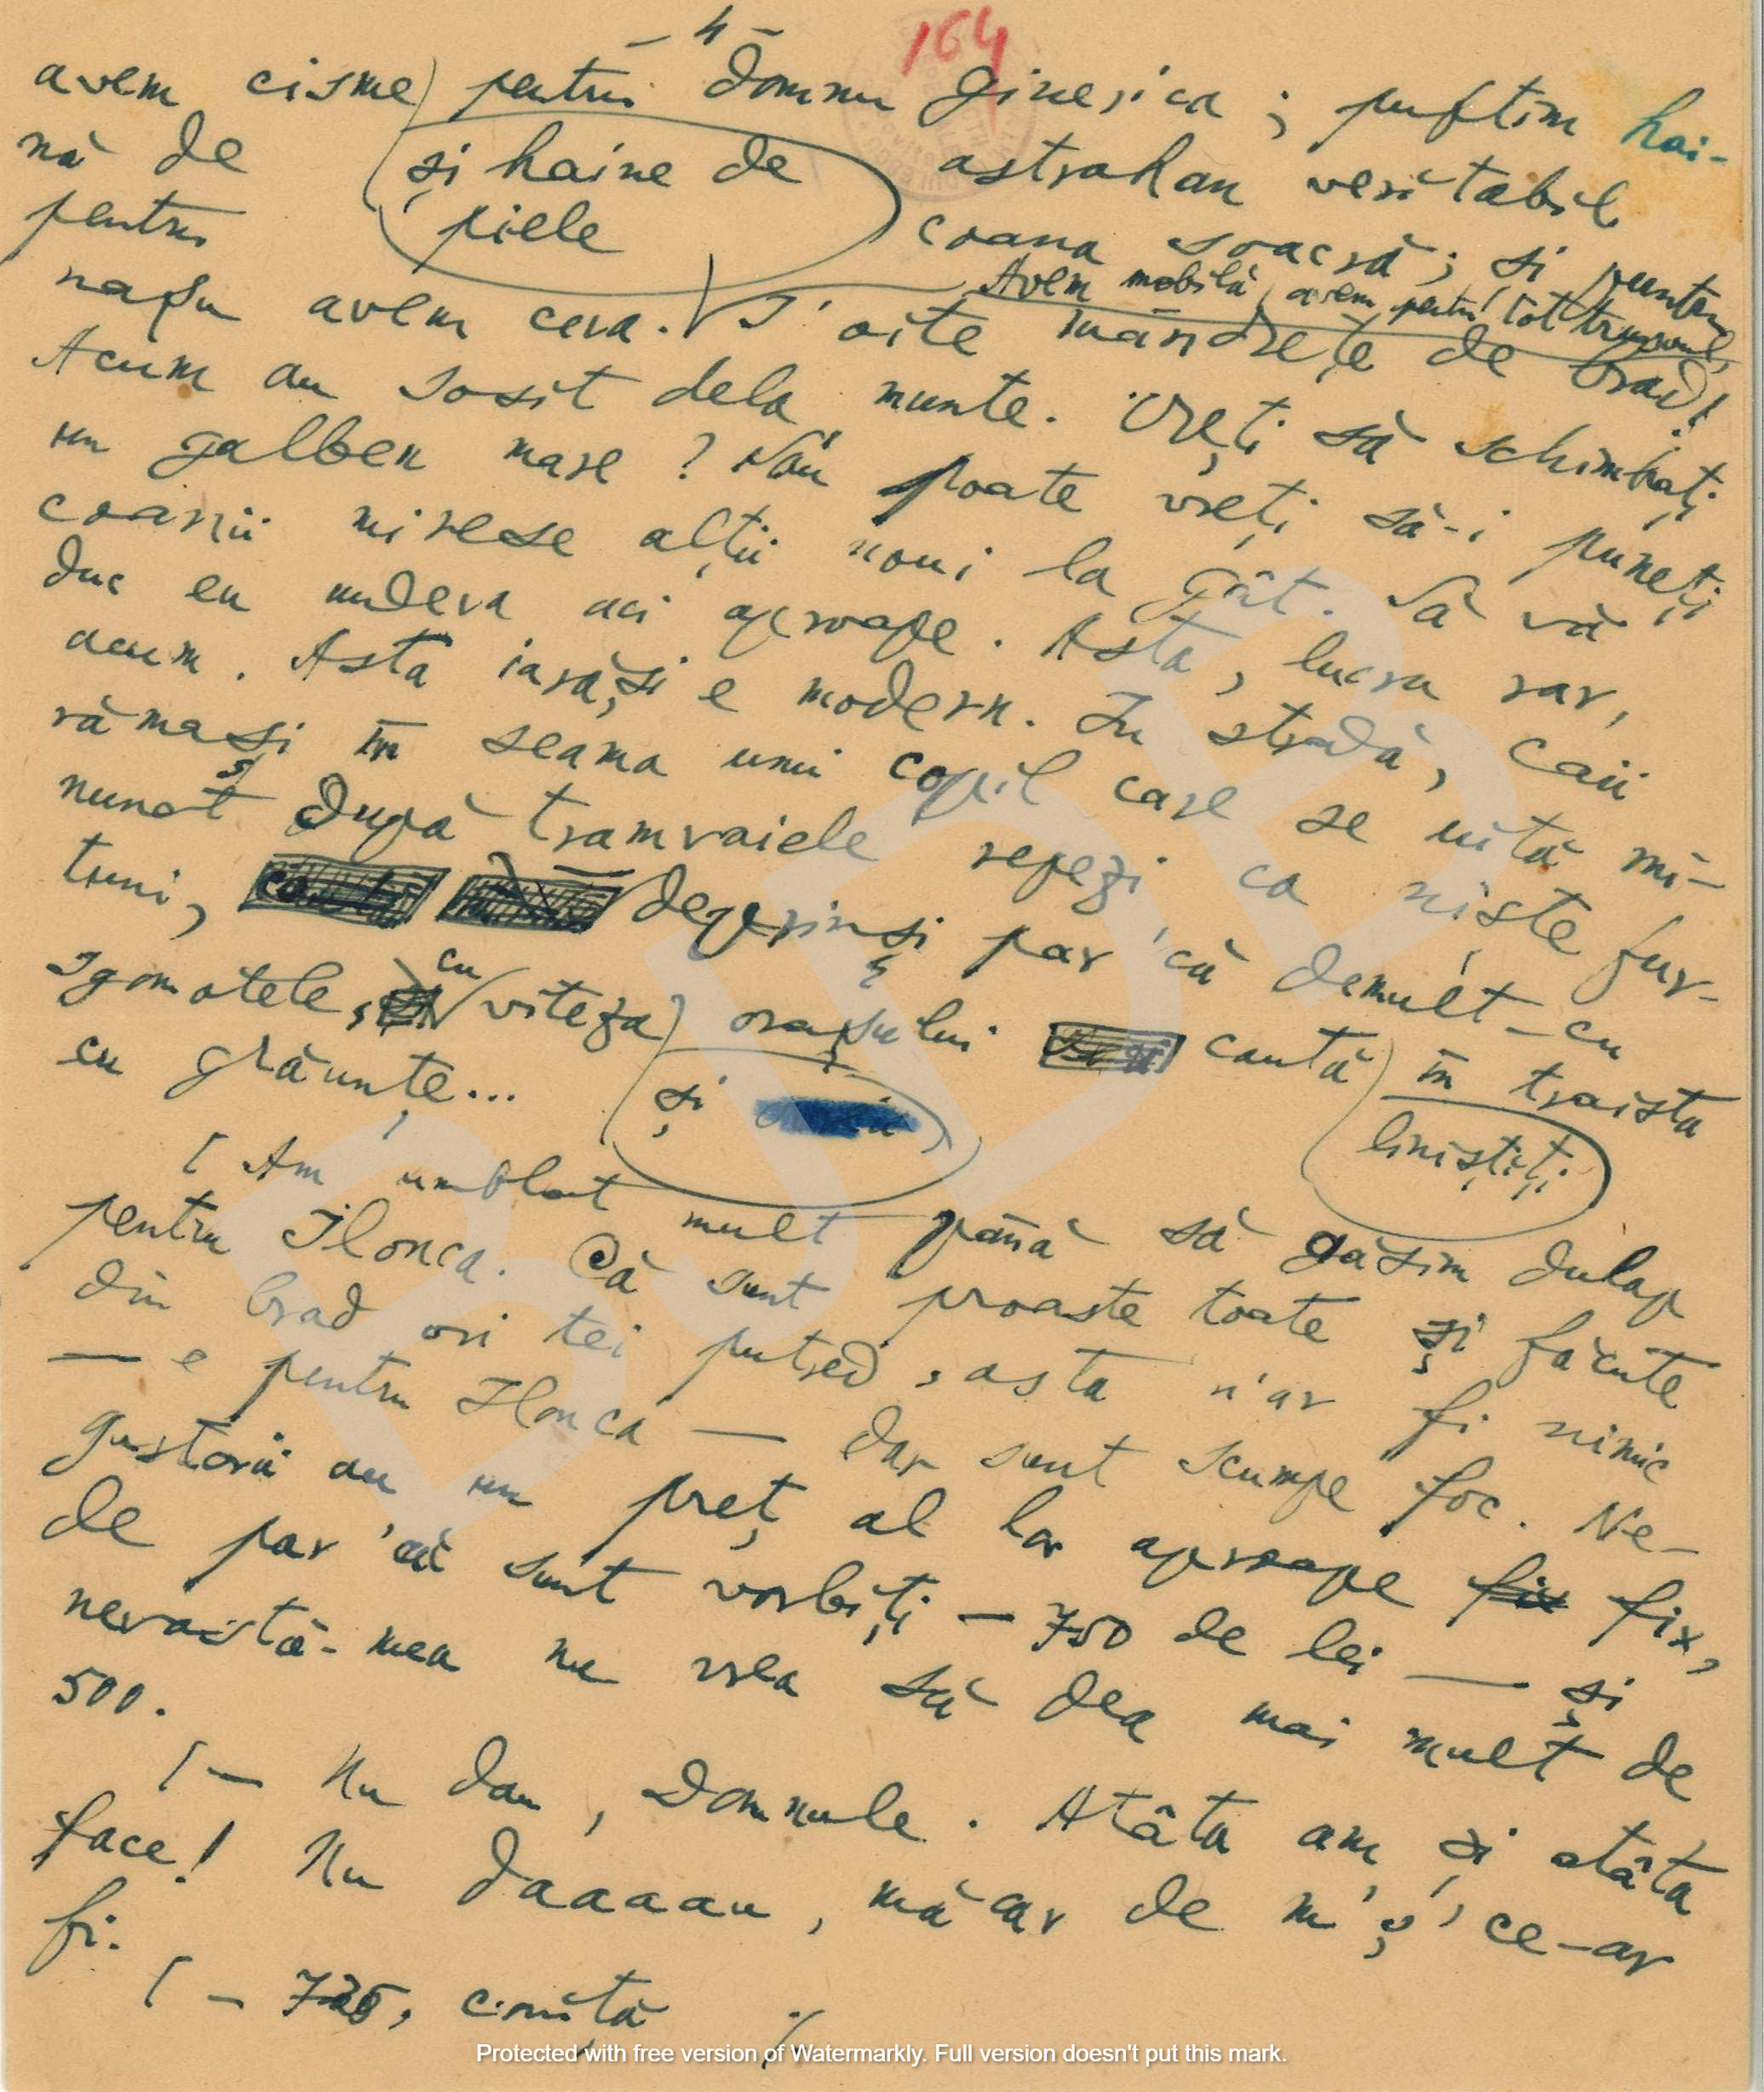 - 4 -
164
avem cisme pentru domnu ginerica ; puftim hai-
nă de și haine de piele astrahan veritabil
pentru coana soacră ; și pentru
Avem mobilă, avem pentru tot trusoul,
nașu avem ceva. S'aite mândrețe de brad!
Acum au sosit dela munte. Vreți să schimbați
un galben mare ? Sau poate vreți să-i puneți
coanii mirese alții noui la gât. Să vă
duc eu undeva aci aproape. Asta, lucru rar,
acum. Asta iarăși e modern. In stradă, caii
rămași în seama unui copil care se uită mi-
nunat după tramvaiele repezi ca niște fur-
tuni, deprinși par'că demult - cu
sgomotele, cu viteza orașului caută în traista
și
liniștiți
cu grăunțe...
[ Am umblat mult până să găsim dulap
pentru Ilonca. Că sunt proaste toate și făcute
din brad ori tei putred, asta n'ar fi nimic
— e pentru Ilonca — dar sunt scumpe foc. Ne-
gustorii au un preț al lor aproape fix fix,
de par'că sunt vorbiți — 750 de lei — și
nevastă-mea nu vrea să dea mai mult de
500.
[ — Nu dau, Domnule. Atâta am, și atâta
face! Nu daaaau, măcar de ce-ar
fi.
[ — 725, coniță ./.
Protected with free version of Watermarkly. Full version doesn't put this mark.